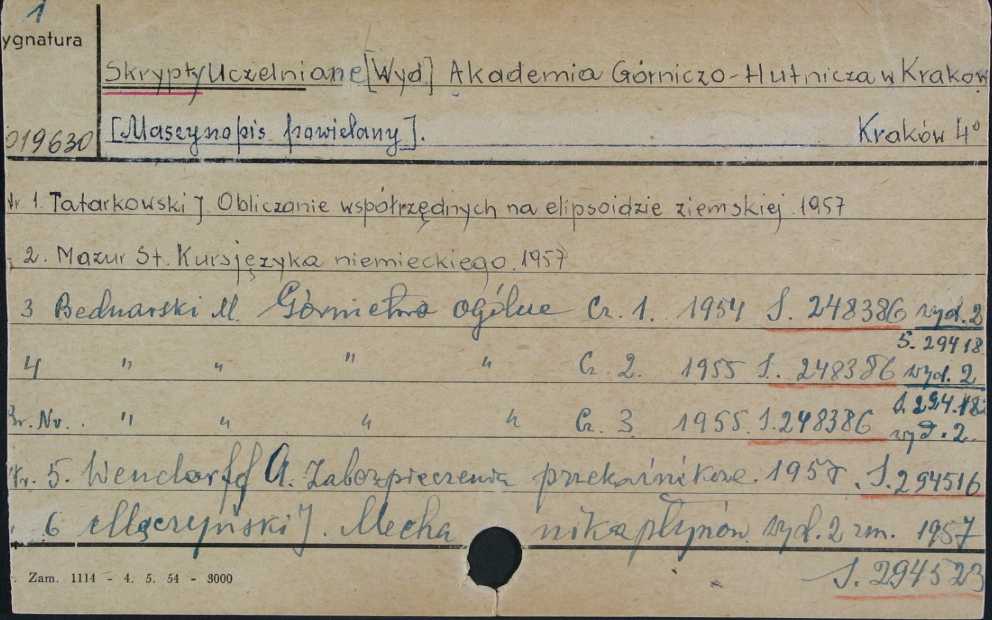 1
ygnatura
Skrypty Uczelniane [Wyd] Akademia Górniczo-Hutnicza w Krakow
019630 [Maszynopis powielany]. Kraków 4°
Nr. 1. Tatarkowski J. Obliczanie współrzędnych na elipsoidzie ziemskiej. 1957
2. Mazur St. Kurs języka niemieckiego. 1957
3 Bednarski M. Górnictwo ogólne Cz. 1. 1954 S. 248386 wyd. 2
S. 29418
4 " " " " Cz. 2. 1955 S. 248386 wyd. 2
S. 294.18
Br. Nr. . " " " " Cz. 3. 1955. S. 248386 wyd. 2.
Nr. 5. Wendorff A. Zabezpieczenia przekaźnikowe. 1957. S. 294516
6 Mączyński J. Mechanika płynów. wyd. 2 zm. 1957
S. 294523
. Zam. 1114 - 4. 5. 54 - 3000